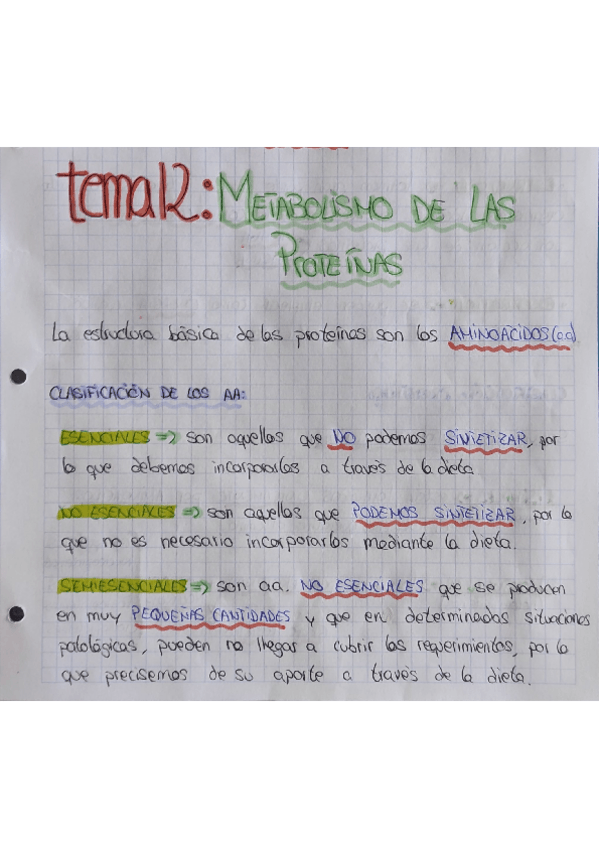 tema12: METABOLISMO DE LAS
PROTEÍNAS
La estructura básica de las proteínas son los AMINOACIDOS (aa)
CLASIFICACIÓN DE LOS AA:
ESENCIALES => son aquellos que NO podemos SINTETIZAR, por
lo que debemos incorporarlos a través de la dieta.
NO ESENCIALES => son aquellos que PODEMOS SINTETIZAR, por lo
que no es necesario incorporarlos mediante la dieta.
SEMIESENCIALES => son aa. NO ESENCIALES que se producen
en muy PEQUEÑAS CANTIDADES y que en determinadas situaciones
patológicas, pueden no llegar a cubrir los requerimientos, por lo
que precisemos de su aporte a través de la dieta.